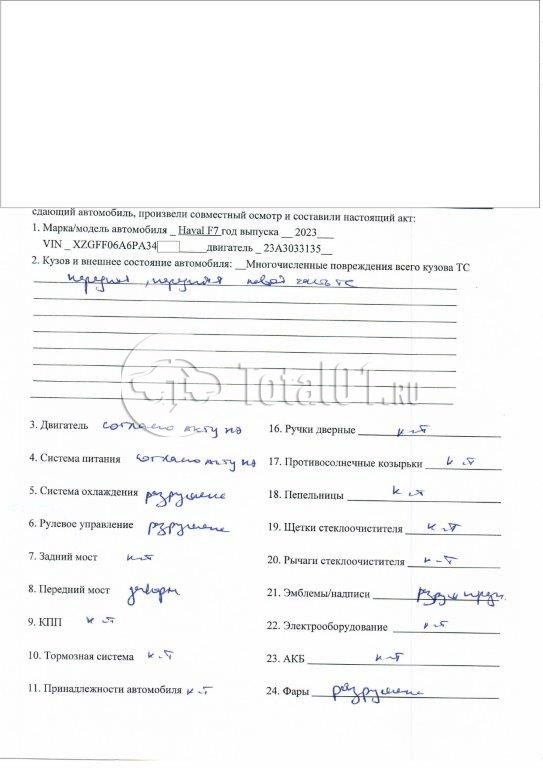 сдающий автомобиль, произвели совместный осмотр и составили настоящий акт:
1. Марка/модель автомобиля _ Haval F7 год выпуска __ 2023___
VIN _ XZGFF06A6PA34 _____двигатель _ 23A3033135__
2. Кузов и внешнее состояние автомобиля: __Многочисленные повреждения всего кузова ТС
передняя, передняя левая часть ТС
Total01.RU
3. Двигатель согласно акту
4. Система питания согласно акту
5. Система охлаждения разрушена
6. Рулевое управление разрушено
7. Задний мост к-т
8. Передний мост
9. КПП к-т
10. Тормозная система к-т
11. Принадлежности автомобиля к-т
16. Ручки дверные к-т
17. Противосолнечные козырьки к-т
18. Пепельницы к-т
19. Щетки стеклоочистителя к-т
20. Рычаги стеклоочистителя к-т
21. Эмблемы/надписи
22. Электрооборудование к-т
23. АКБ к-т
24. Фары разрушены